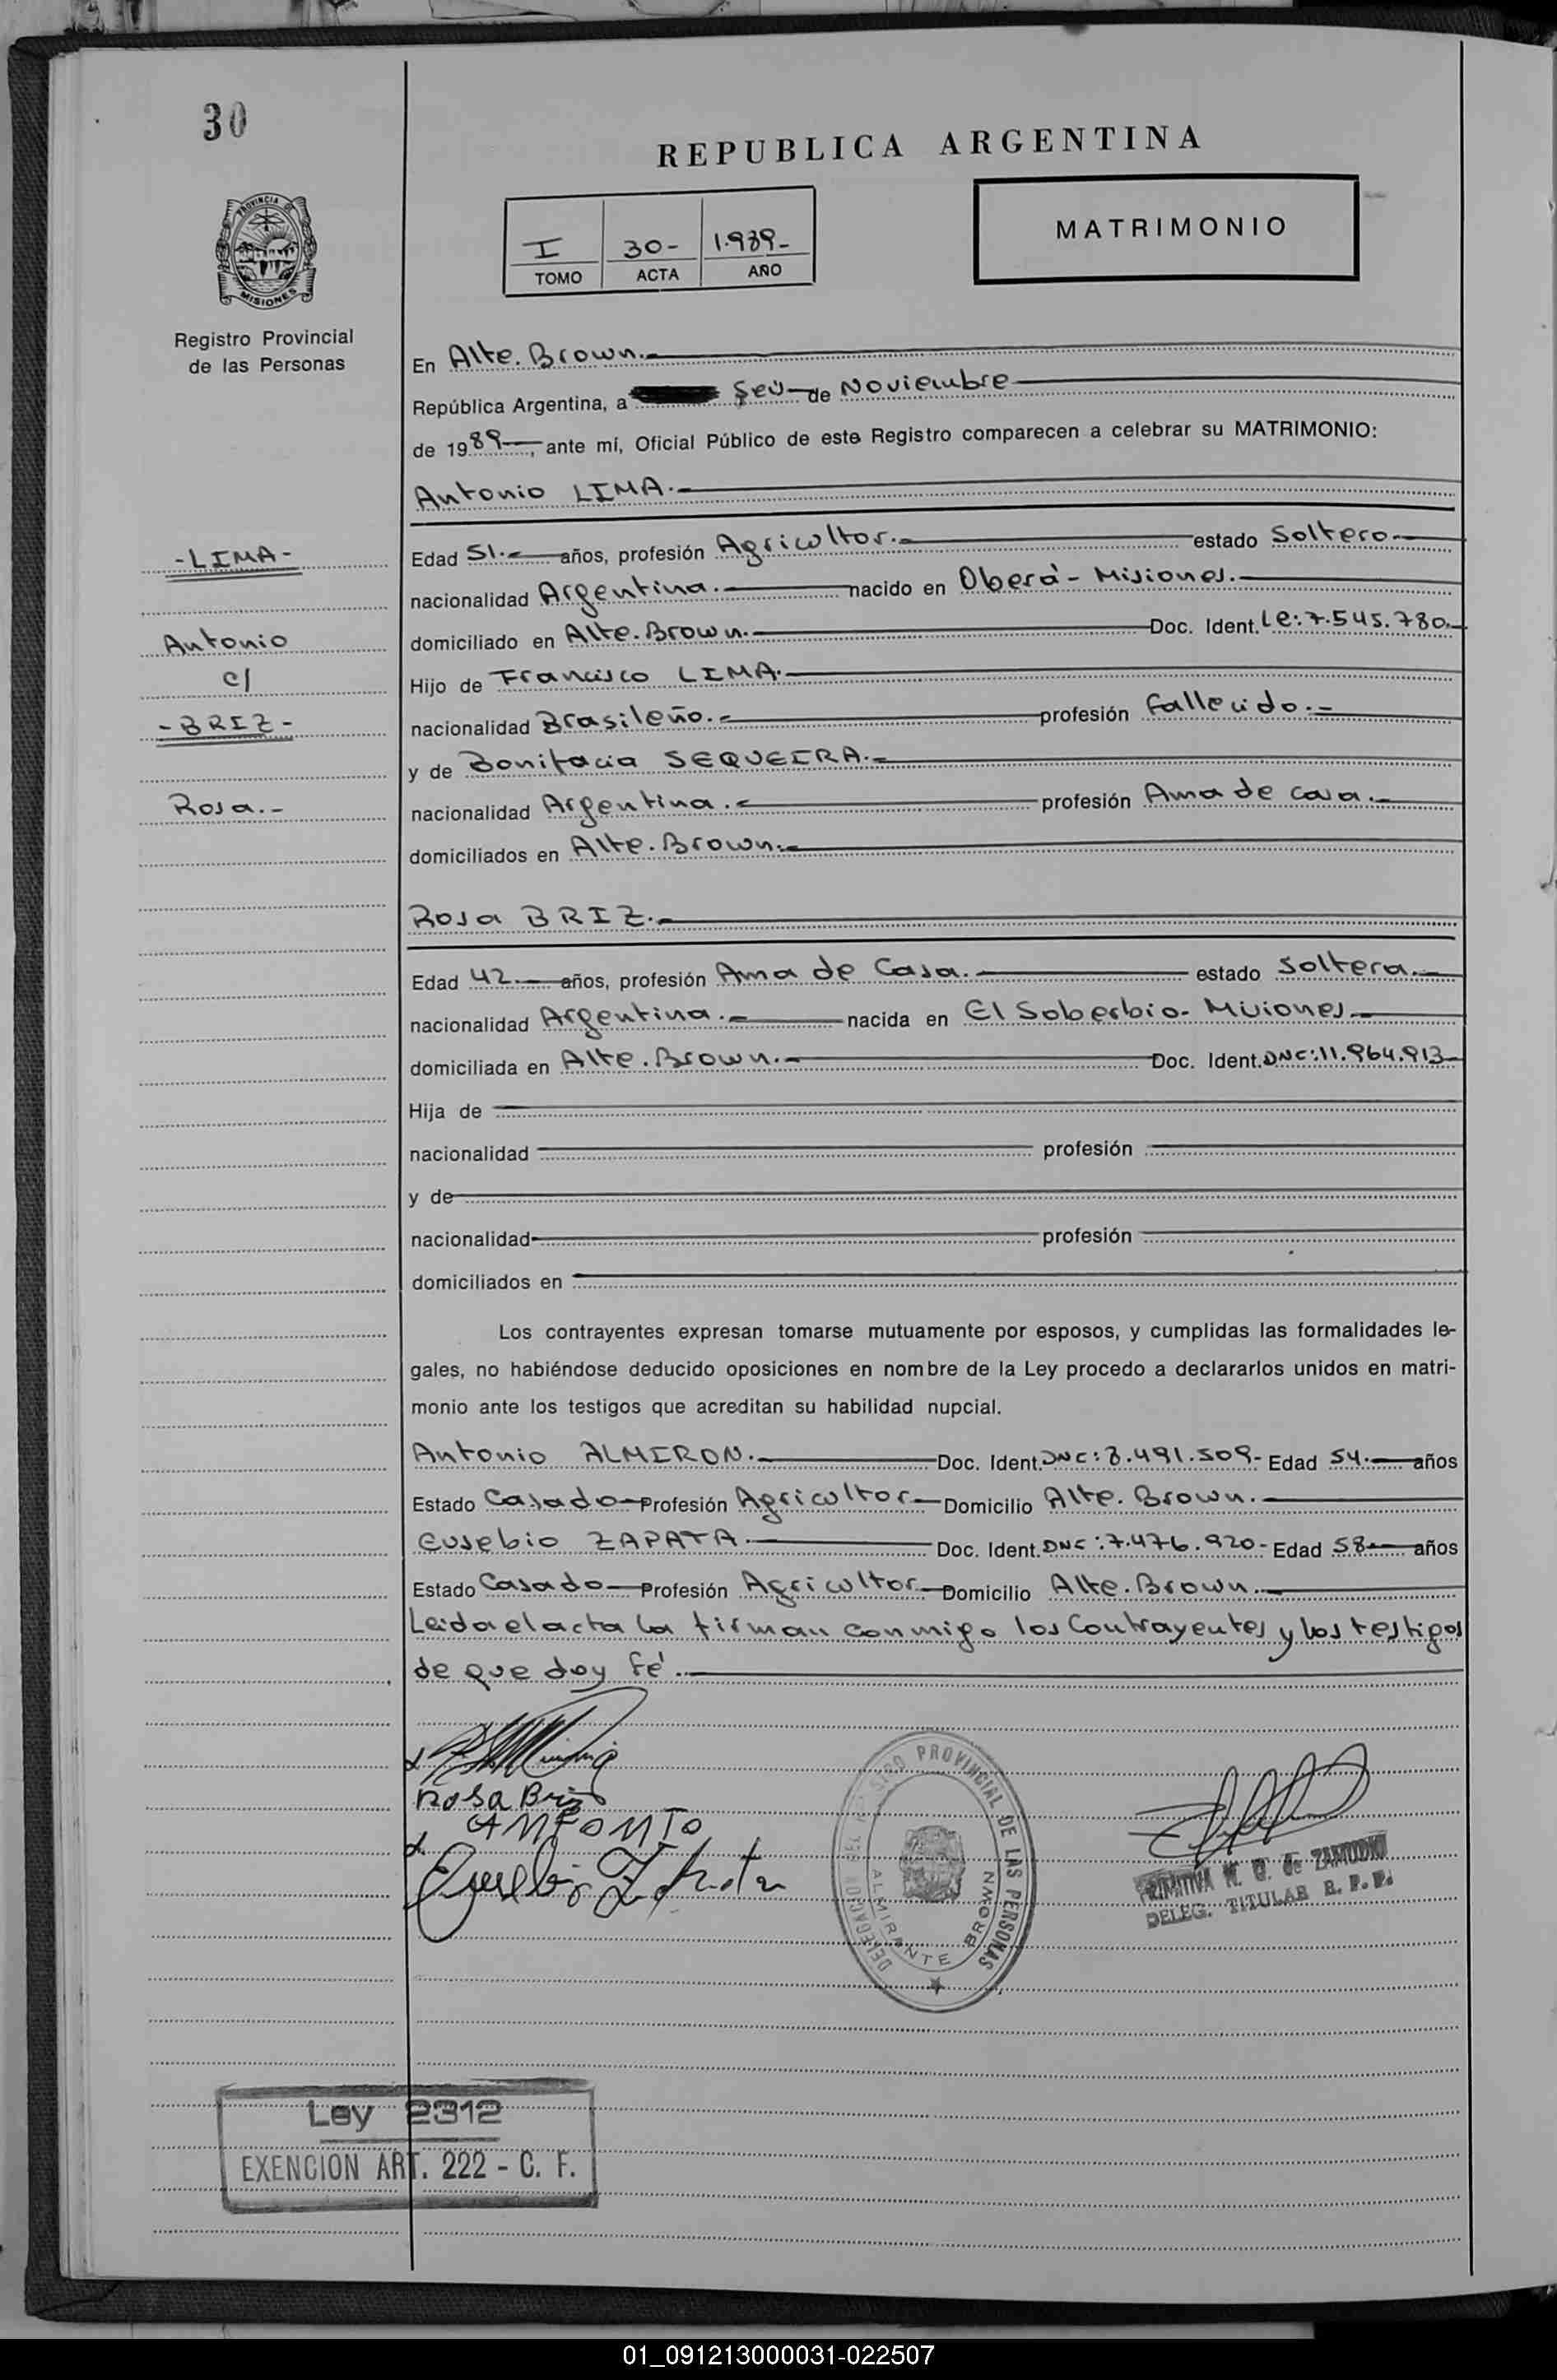 30
REPUBLICA ARGENTINA
PROVINCIA DE
MISIONES
I 30- 1.989-
TOMO ACTA AÑO
MATRIMONIO
Registro Provincial
de las Personas
En Alte. Brown.-
República Argentina, a Seis de Noviembre
de 1989, ante mí, Oficial Público de este Registro comparecen a celebrar su MATRIMONIO:
Antonio LIMA.-
-LIMA-
Antonio
c/
-BRIZ-
Rosa.-
Edad 51.- años, profesión Agricultor.- estado Soltero-
nacionalidad Argentina.- nacido en Oberá- Misiones.-
domiciliado en Alte. Brown.- Doc. Ident. Le: 7.545.780.-
Hijo de Francisco LIMA.-
nacionalidad Brasileño.- profesión fallecido.-
y de Bonifacia SEQUEIRA.-
nacionalidad Argentina.- profesión Ama de casa.-
domiciliados en Alte. Brown.-
Rosa BRIZ.-
Edad 42.- años, profesión Ama de Casa.- estado Soltera.-
nacionalidad Argentina.- nacida en El Soberbio- Misiones.-
domiciliada en Alte. Brown.- Doc. Ident. DNC: 11.964.913-
Hija de
nacionalidad profesión
y de
nacionalidad profesión
domiciliados en
Los contrayentes expresan tomarse mutuamente por esposos, y cumplidas las formalidades le-
gales, no habiéndose deducido oposiciones en nombre de la Ley procedo a declararlos unidos en matri-
monio ante los testigos que acreditan su habilidad nupcial.
Antonio ALMIRON.- Doc. Ident. DNC: 8.491.509- Edad 54.- años
Estado Casado- Profesión Agricultor- Domicilio Alte. Brown.-
Eusebio ZAPATA.- Doc. Ident. DNC: 7.476.920- Edad 58- años
Estado Casado- Profesión Agricultor- Domicilio Alte. Brown.-
Leida el acta la firman conmigo los Contrayentes y los testigos
de que doy fé.-
Rosa Briz
ANTONIO
Eusebio Zapata
DELEGACION DEL REGISTRO PROVINCIAL DE LAS PERSONAS
ALMIRANTE BROWN
PRIMITIVA de ZAMUDIO
DELEG. TITULAR R. P. P.
Ley 2312
EXENCION ART. 222 - C. F.
01_091213000031-022507